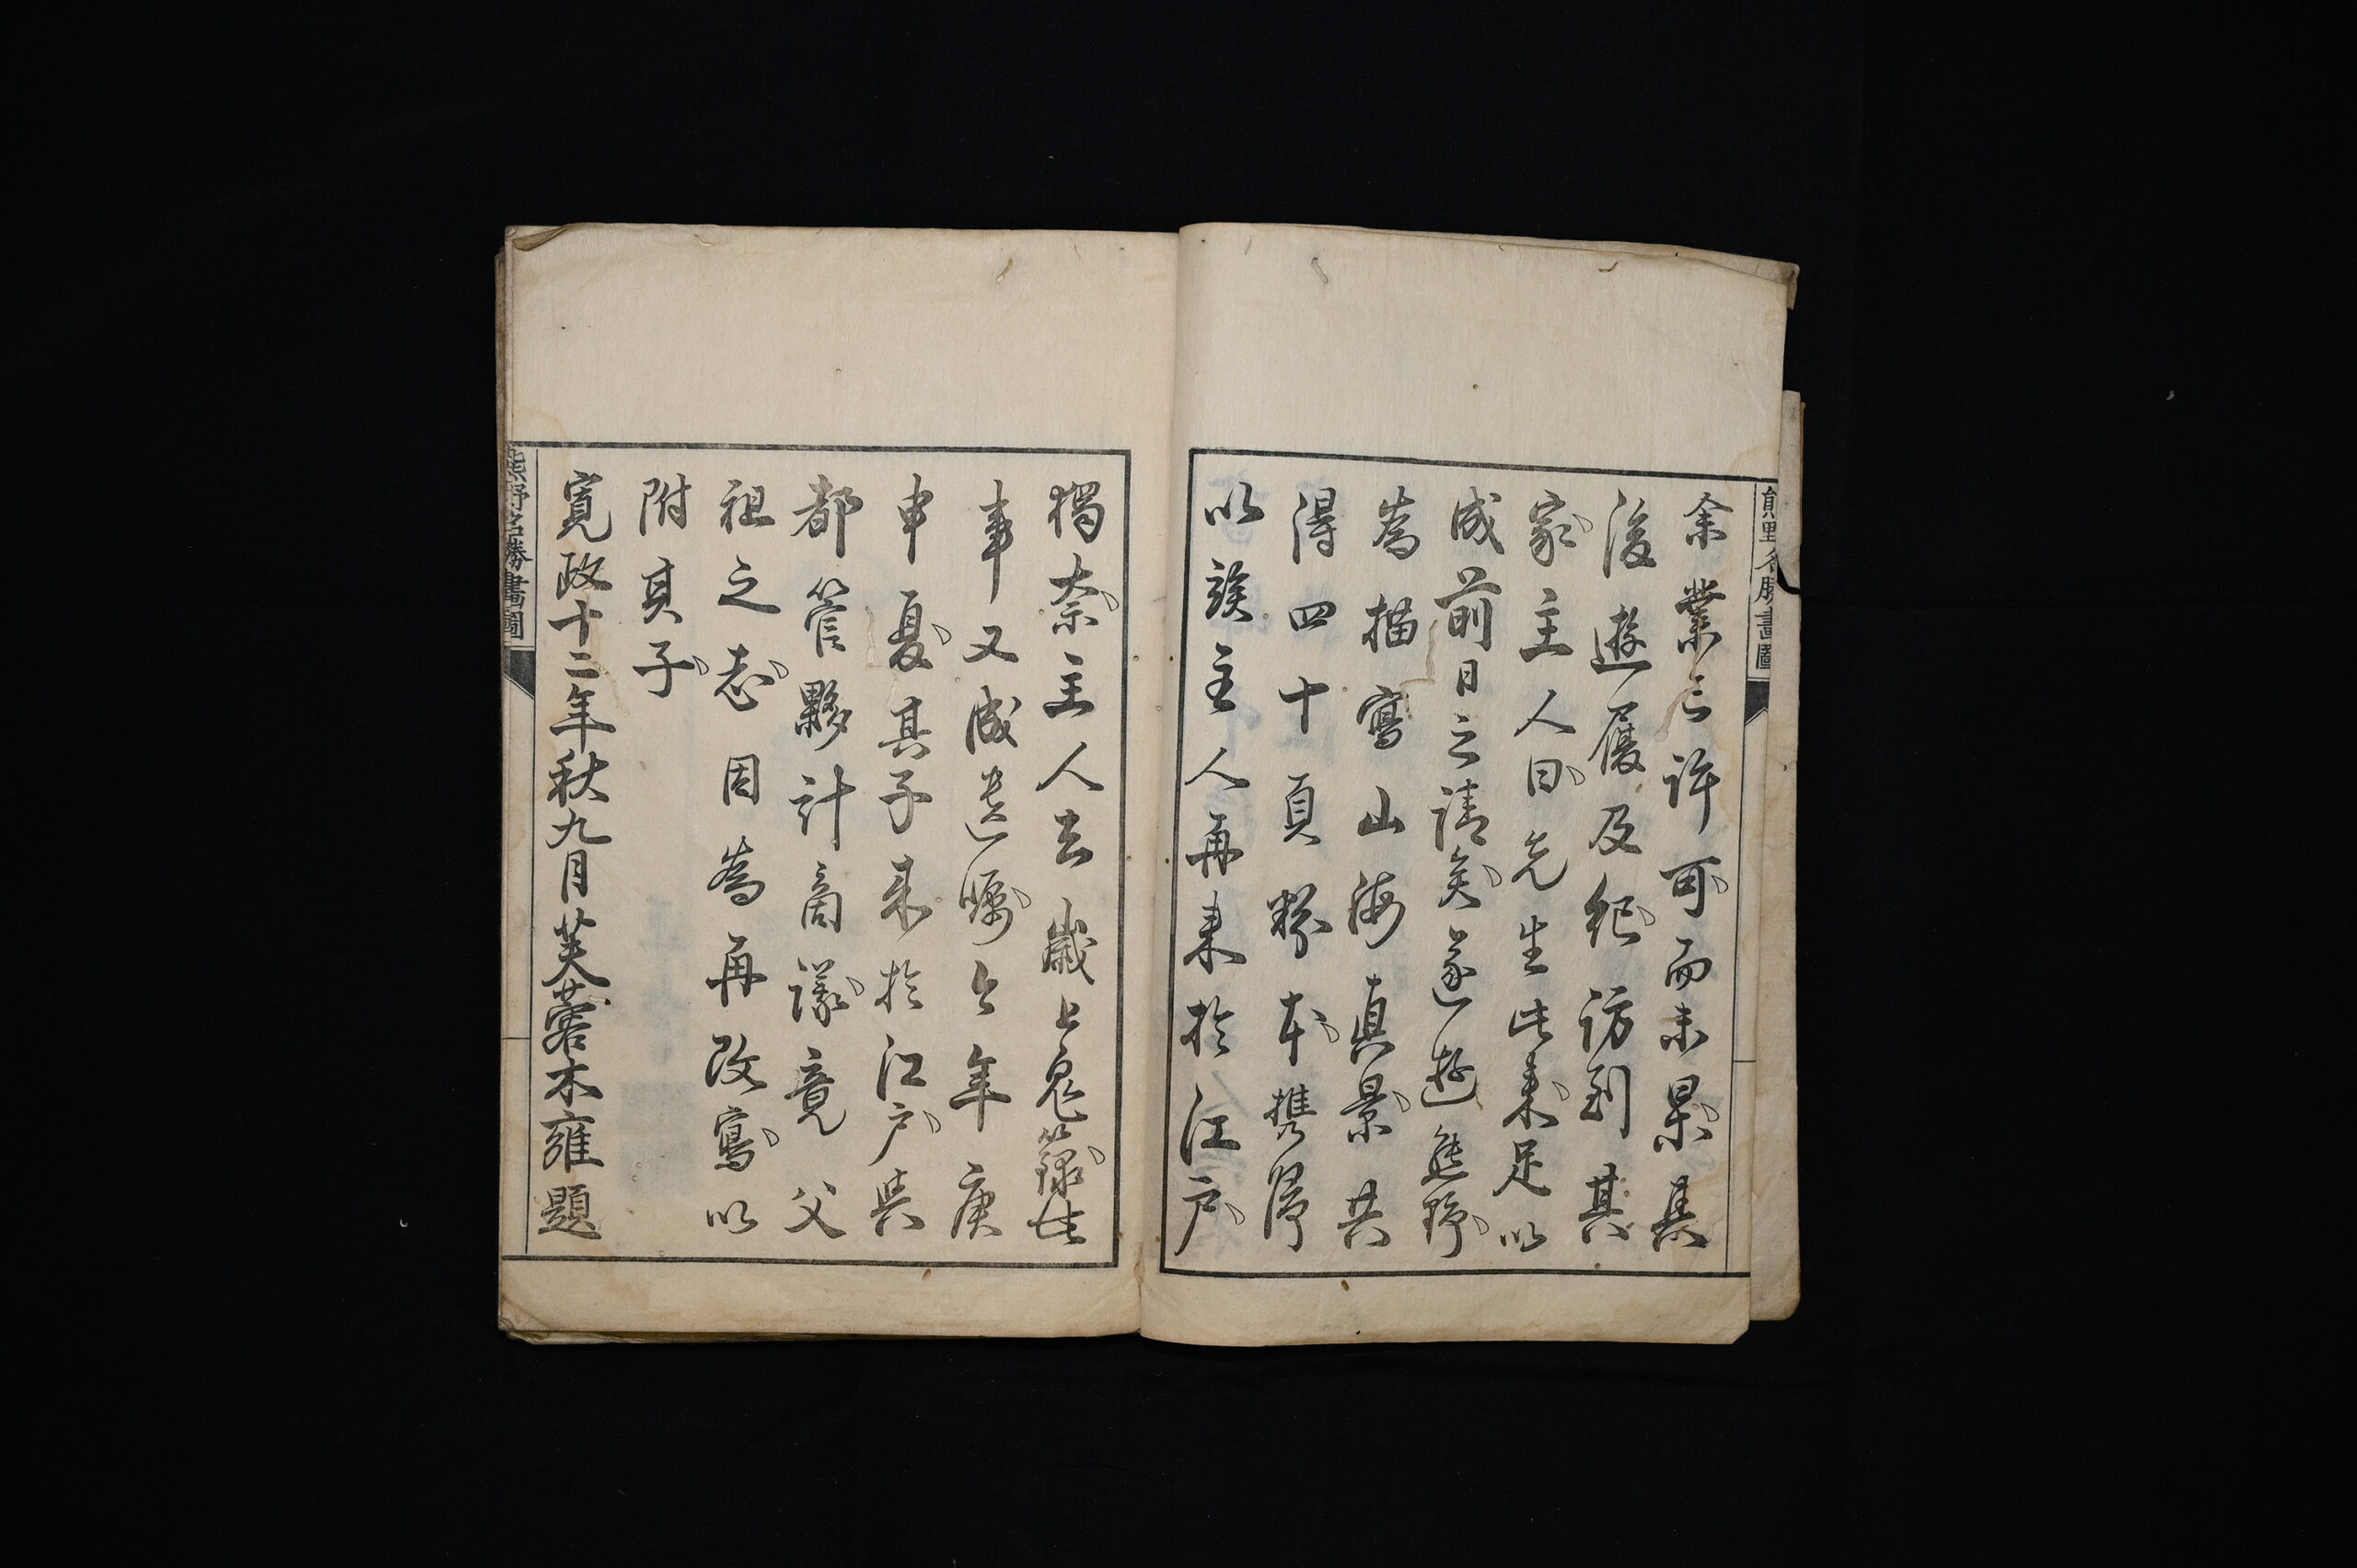 熊野名勝畫圖
余業已許可而未果其
後遊屐及紀訪到其
家主人曰先生此来足以
成前日之請矣遂遊熊野
為描寫山海真景共
得四十頁粉本携歸
以竢主人再来於江戸
獨奈主人去歲上鬼籙此
事又成遺囑今年庚
申夏其子来於江戸與
都管夥計商議竟父
祖之志因為再改寫以
附其子
寛政十二年秋九月芙蓉木雍題
熊野名勝畫圖